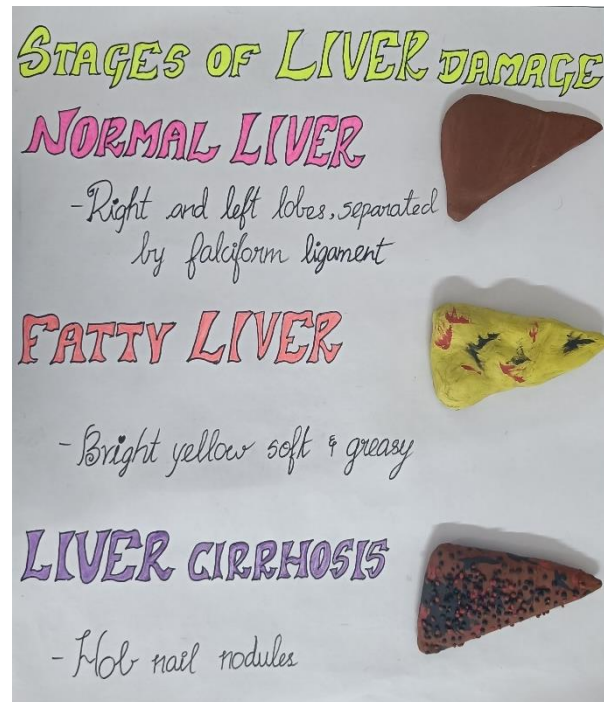 STAGES OF LIVER DAMAGE
NORMAL LIVER
- Right and left lobes, separated
by falciform ligament
FATTY LIVER
- Bright yellow soft & greasy
LIVER CIRRHOSIS
- Hob nail nodules